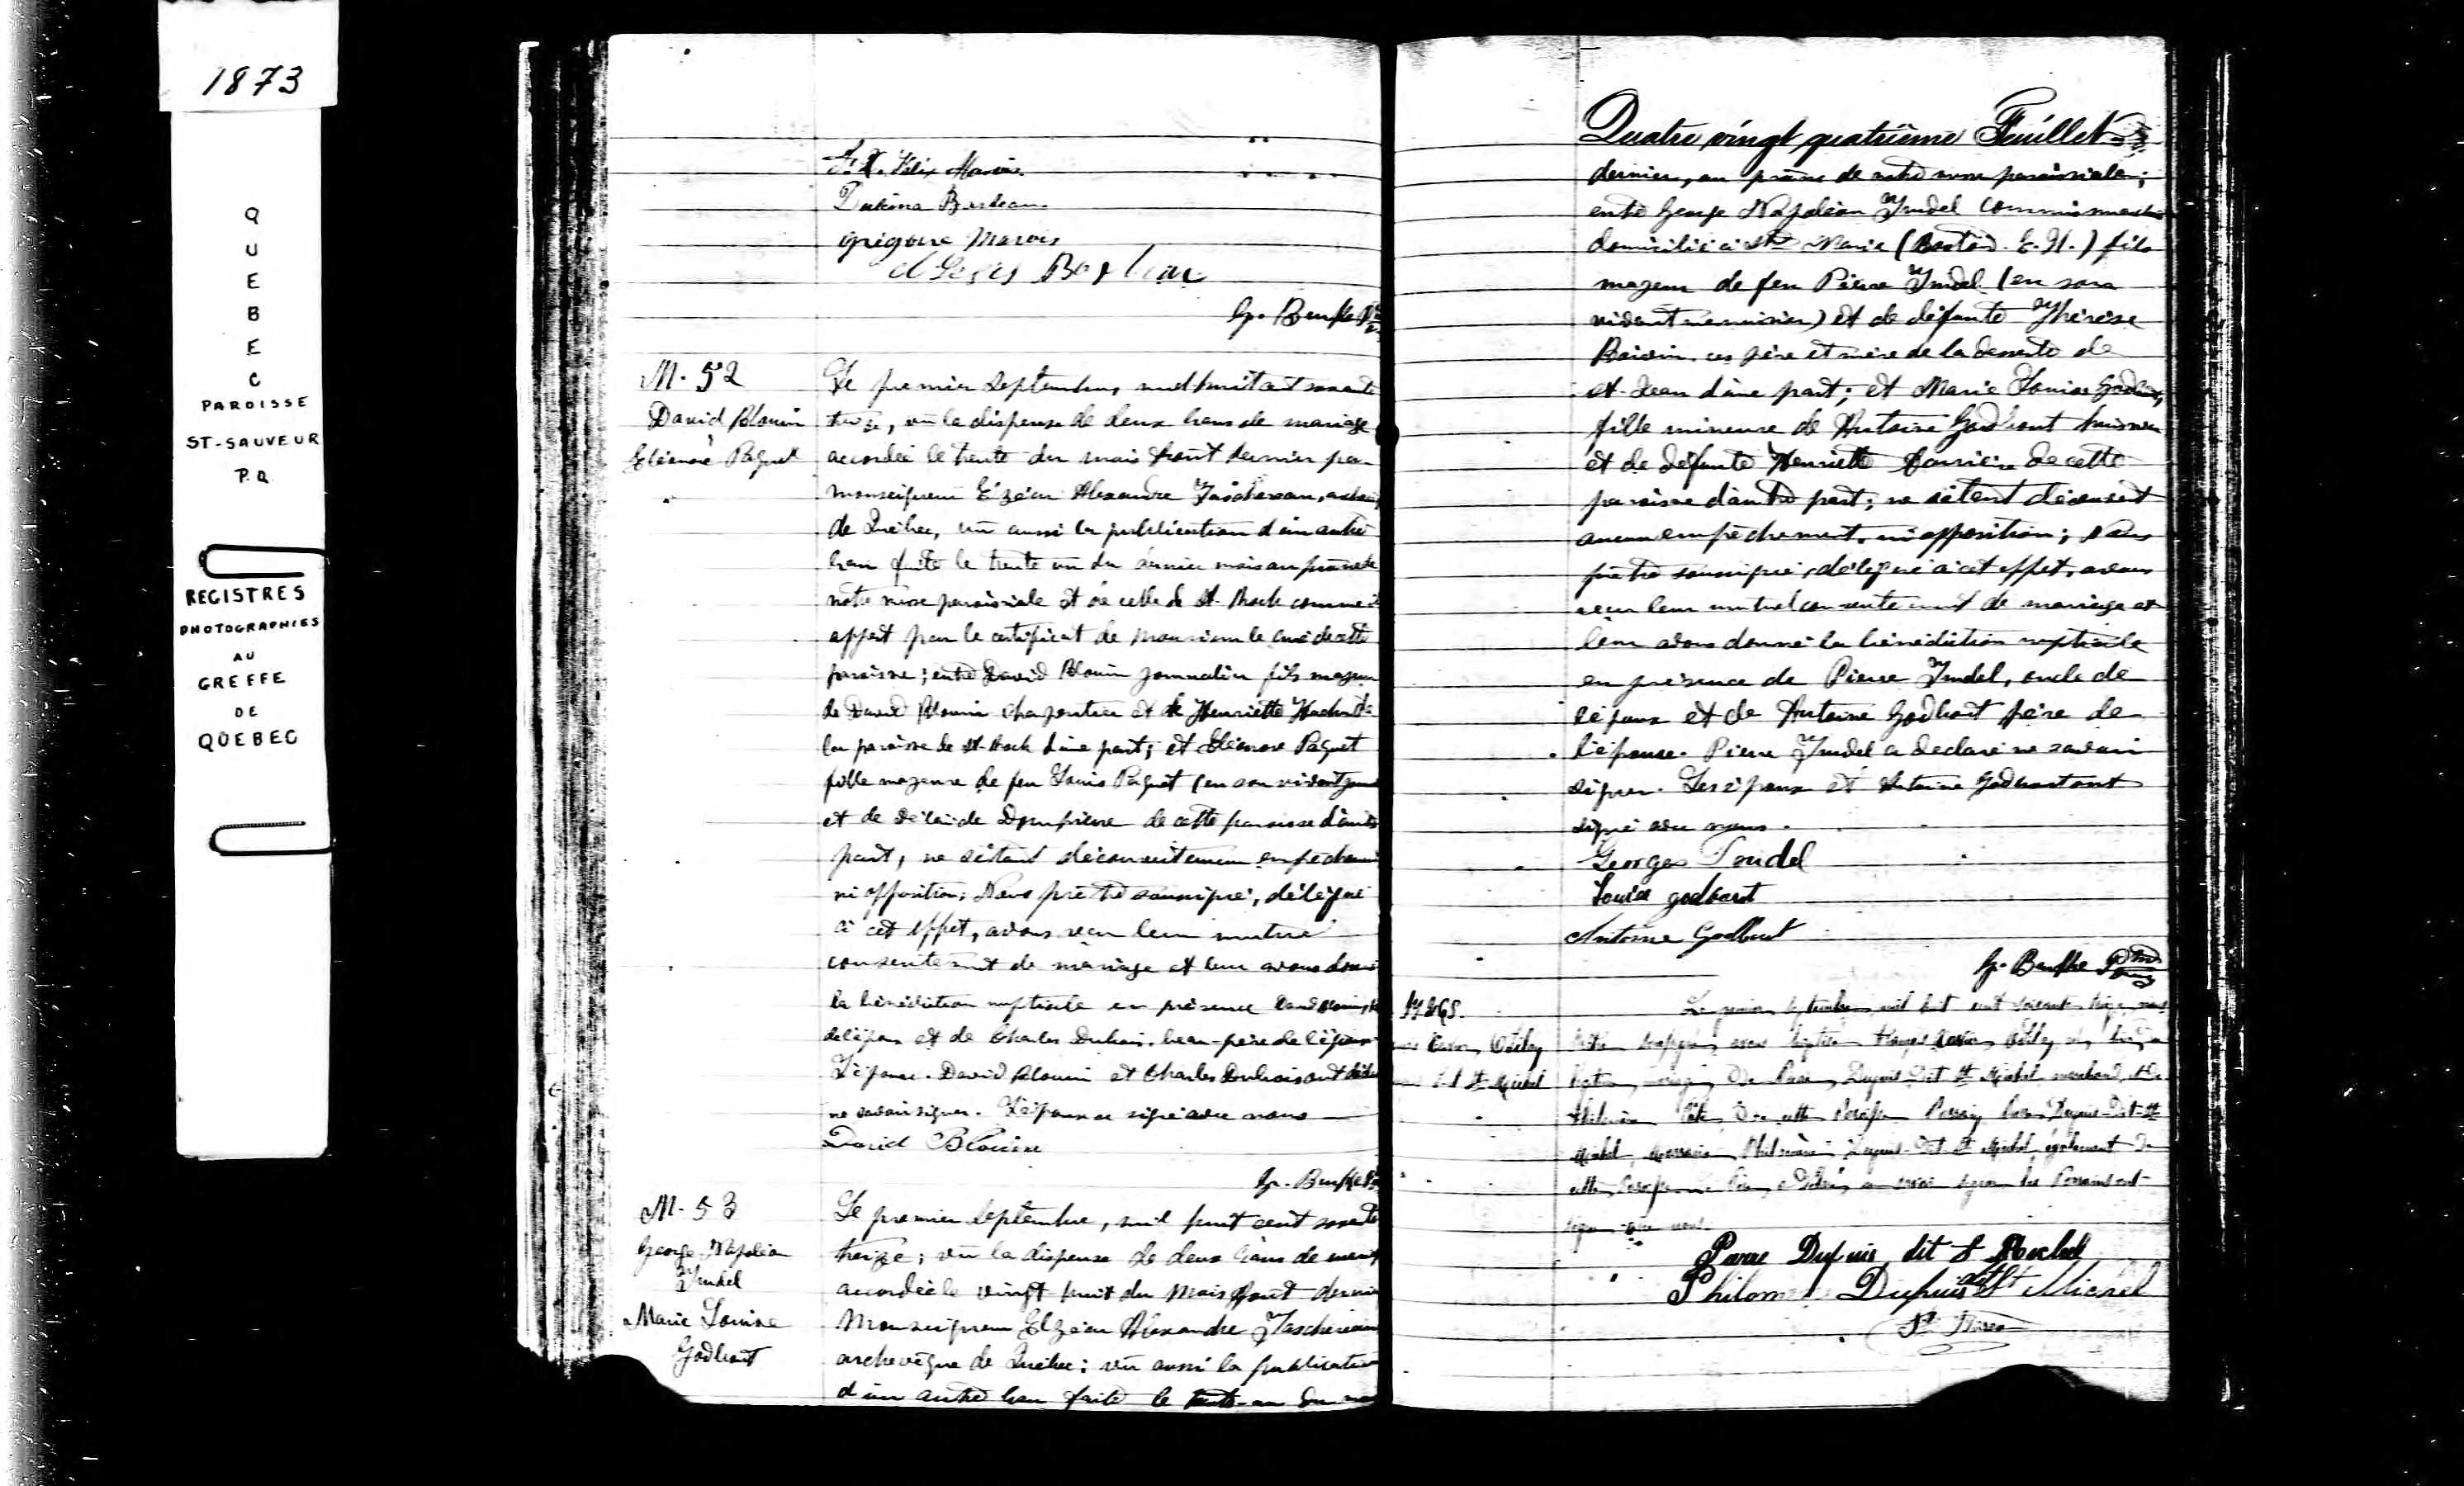 1873
QUEBEC
PAROISSE
ST-SAUVEUR
P.Q.
REGISTRES
PHOTOGRAPHIES
AU
GREFFE
DE
QUEBEC
F. X. Félix
Grégoire Marois
M. 52
David Blouin
&
Eléonore Paquet
Le premier Septembre, mil huit cent soixante
treize, vu la dispense de deux bans de mariage
accordée le trente du mois d'août dernier par
monseigneur Elzéar Alexandre Taschereau, archevêq
de Québec, vu aussi la publication d'un autre
ban faite le trente un du dernier mois au prône de
notre messe paroissiale et de celle de St. Roch comme il
appert par le certificat de monsieur le curé de cette
paroisse; entre David Blouin journalier fils majeur
de David Blouin charpentier et de Henriette
la paroisse de St. Roch d'une part; et Eléonore Paquet
fille majeure de feu Louis Paquet (en son vivant
et de Délaide Dompierre de cette paroisse d'autre
part, ne s'étant découvert aucun empêchement
ni opposition; Nous prêtre soussigné, délégué
à cet effet, avons reçu leur mutuel
consentement de mariage et leur avons donné
la bénédiction nuptiale en présence David Blouin,
de l'époux et de Charles Dubois, beau-père de l'épouse
L'épouse. David Blouin et Charles Dubois ont déclaré
ne savoir signer. L'époux a signé avec nous
David Blouin
M. 53
George Napoléon
Trudel
&
Marie Louise
Godbout
Le premier Septembre, mil huit cent soixante
treize; vu la dispense de deux bans de mariage
accordée le vingt huit du mois d'août dernier
Monseigneur Elzéar Alexandre Taschereau
archevêque de Québec; vu aussi la publication
d'un autre ban faite le trente-un du mois
Quatre vingt quatrième Feuillet
dernier, au prône de notre messe paroissiale;
entre George Napoléon Trudel commis marchand
domicilié à Ste Marie (Boston. E. U.) fils
majeur de feu Pierre Trudel (en son
vivant menuisier) et de défunte Thérèse
Boivin, ces père et mère de la desserte de
St. Jean d'une part; et Marie Louise Godbout,
fille mineure de Antoine Godbout huissier
et de défunte Henriette de cette
paroisse d'autre part; ne s'étant découvert
aucun empêchement, ni opposition; Nous
prêtre soussigné, délégué à cet effet, avons
reçu leur mutuel consentement de mariage et
leur avons donné la bénédiction nuptiale
en présence de Pierre Trudel, oncle de
l'époux et de Antoine Godbout père de
l'épouse. Pierre Trudel a déclaré ne savoir
signer. Les époux et Antoine Godbout ont
signé avec nous.
Georges Trudel
Louise godbout
Antoine Godbout
Le premier septembre mil huit cent soixante treize, nous
prêtre soussigné avons baptisé
légitime mariage de Pierre Dupuis dit St Michel marchand, et de
Philomène de cette Paroisse Parrain Dupuis dit St
Michel, Marraine Philomène Dupuis dit St Michel également de
cette Paroisse
signé avec nous.
Pierre Dupuis dit St Michel
Philomène Dupuis dit St Michel